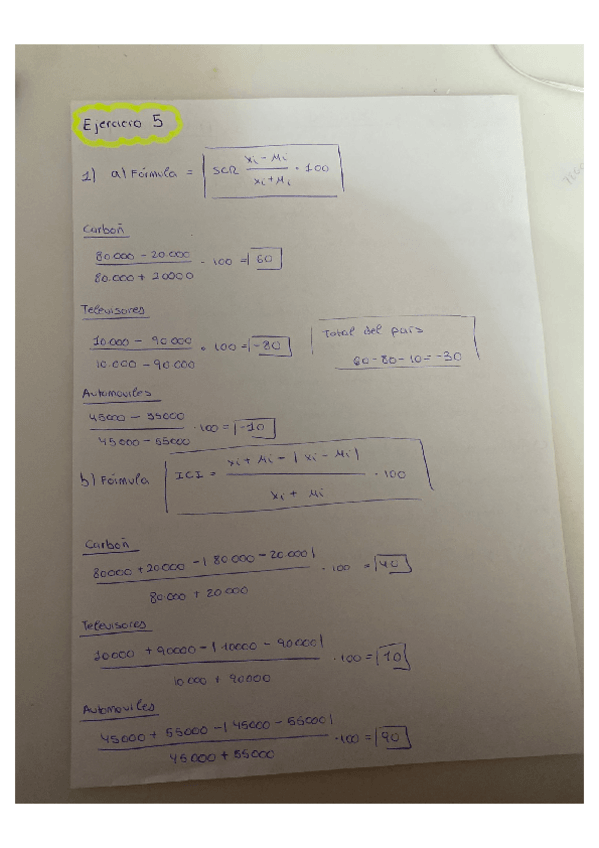 Ejercicio 5
1) a) Fórmula = SCR xi - Mi / xi + Mi · 100
Carboñ
80.000 - 20.000 / 80.000 + 20000 · 100 = 60
Televisores
10.000 - 90.000 / 10.000 - 90.000 · 100 = -80
Total del país
60 - 80 - 10 = -30
Automoviles
45000 - 55000 / 45000 - 55000 · 100 = -10
b) Fórmula ICI = xi + Mi - | xi - Mi | / xi + Mi · 100
Carboñ
80000 + 20000 - | 80000 - 20.000 | / 80.000 + 20.000 · 100 = 40
Televisores
10000 + 90000 - | 10000 - 90000 | / 10.000 + 90000 · 100 = 10
Automoviles
45000 + 55000 - | 45000 - 55000 | / 45000 + 55000 · 100 = 90